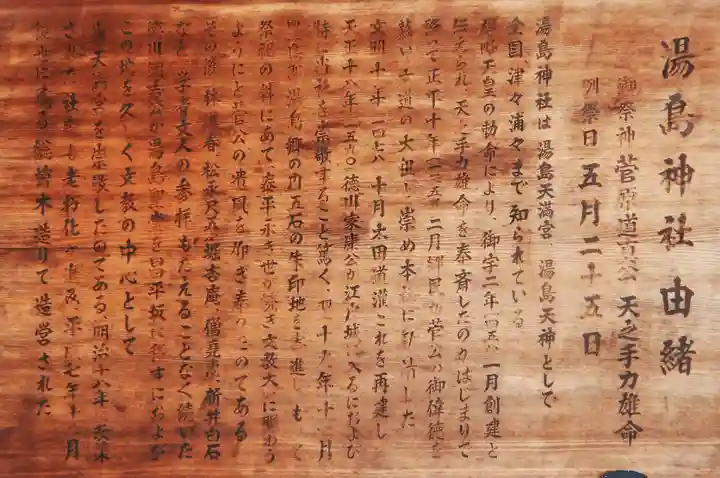 湯島神社由緒
御祭神 菅原道真公 天之手力雄命
例祭日 五月二十五日
湯島神社は湯島天満宮、湯島天神として
全国、津々浦々まで知られている
雄略天皇の勅命により、御宇二年 一月創建と
伝えられ、天之手力雄命を奉斎したのがはじまりで
降って正平十年 二月郷民が菅公の御偉徳を
慕い文道の大祖と崇め本社に勧請した
文明十年 十月太田道灌これを再建し
天正十八年 徳川家康公が江戸城に入るにおよび
特に当社を崇敬すること篤く 十九年十一月
湯島郷の内五石の朱印地を寄進し もって
祭祀の料にあて、泰平永き世が続き文教大いに賑わう
ようにと菅公の遺風を仰ぎ奉ったのである
その後、林道春、松永尺五、堀杏庵、僧堯恵、新井白石
など 学者文人の参拝もたえることなく続いた
徳川綱吉公が湯島聖堂を昌平坂に移すにおよび
この地を久しく文教の中心として
湯島天満宮を崇敬したのである 明治十八年
された社殿も老朽化 平成七年十二月
後世に残る総檜木造りで造営された